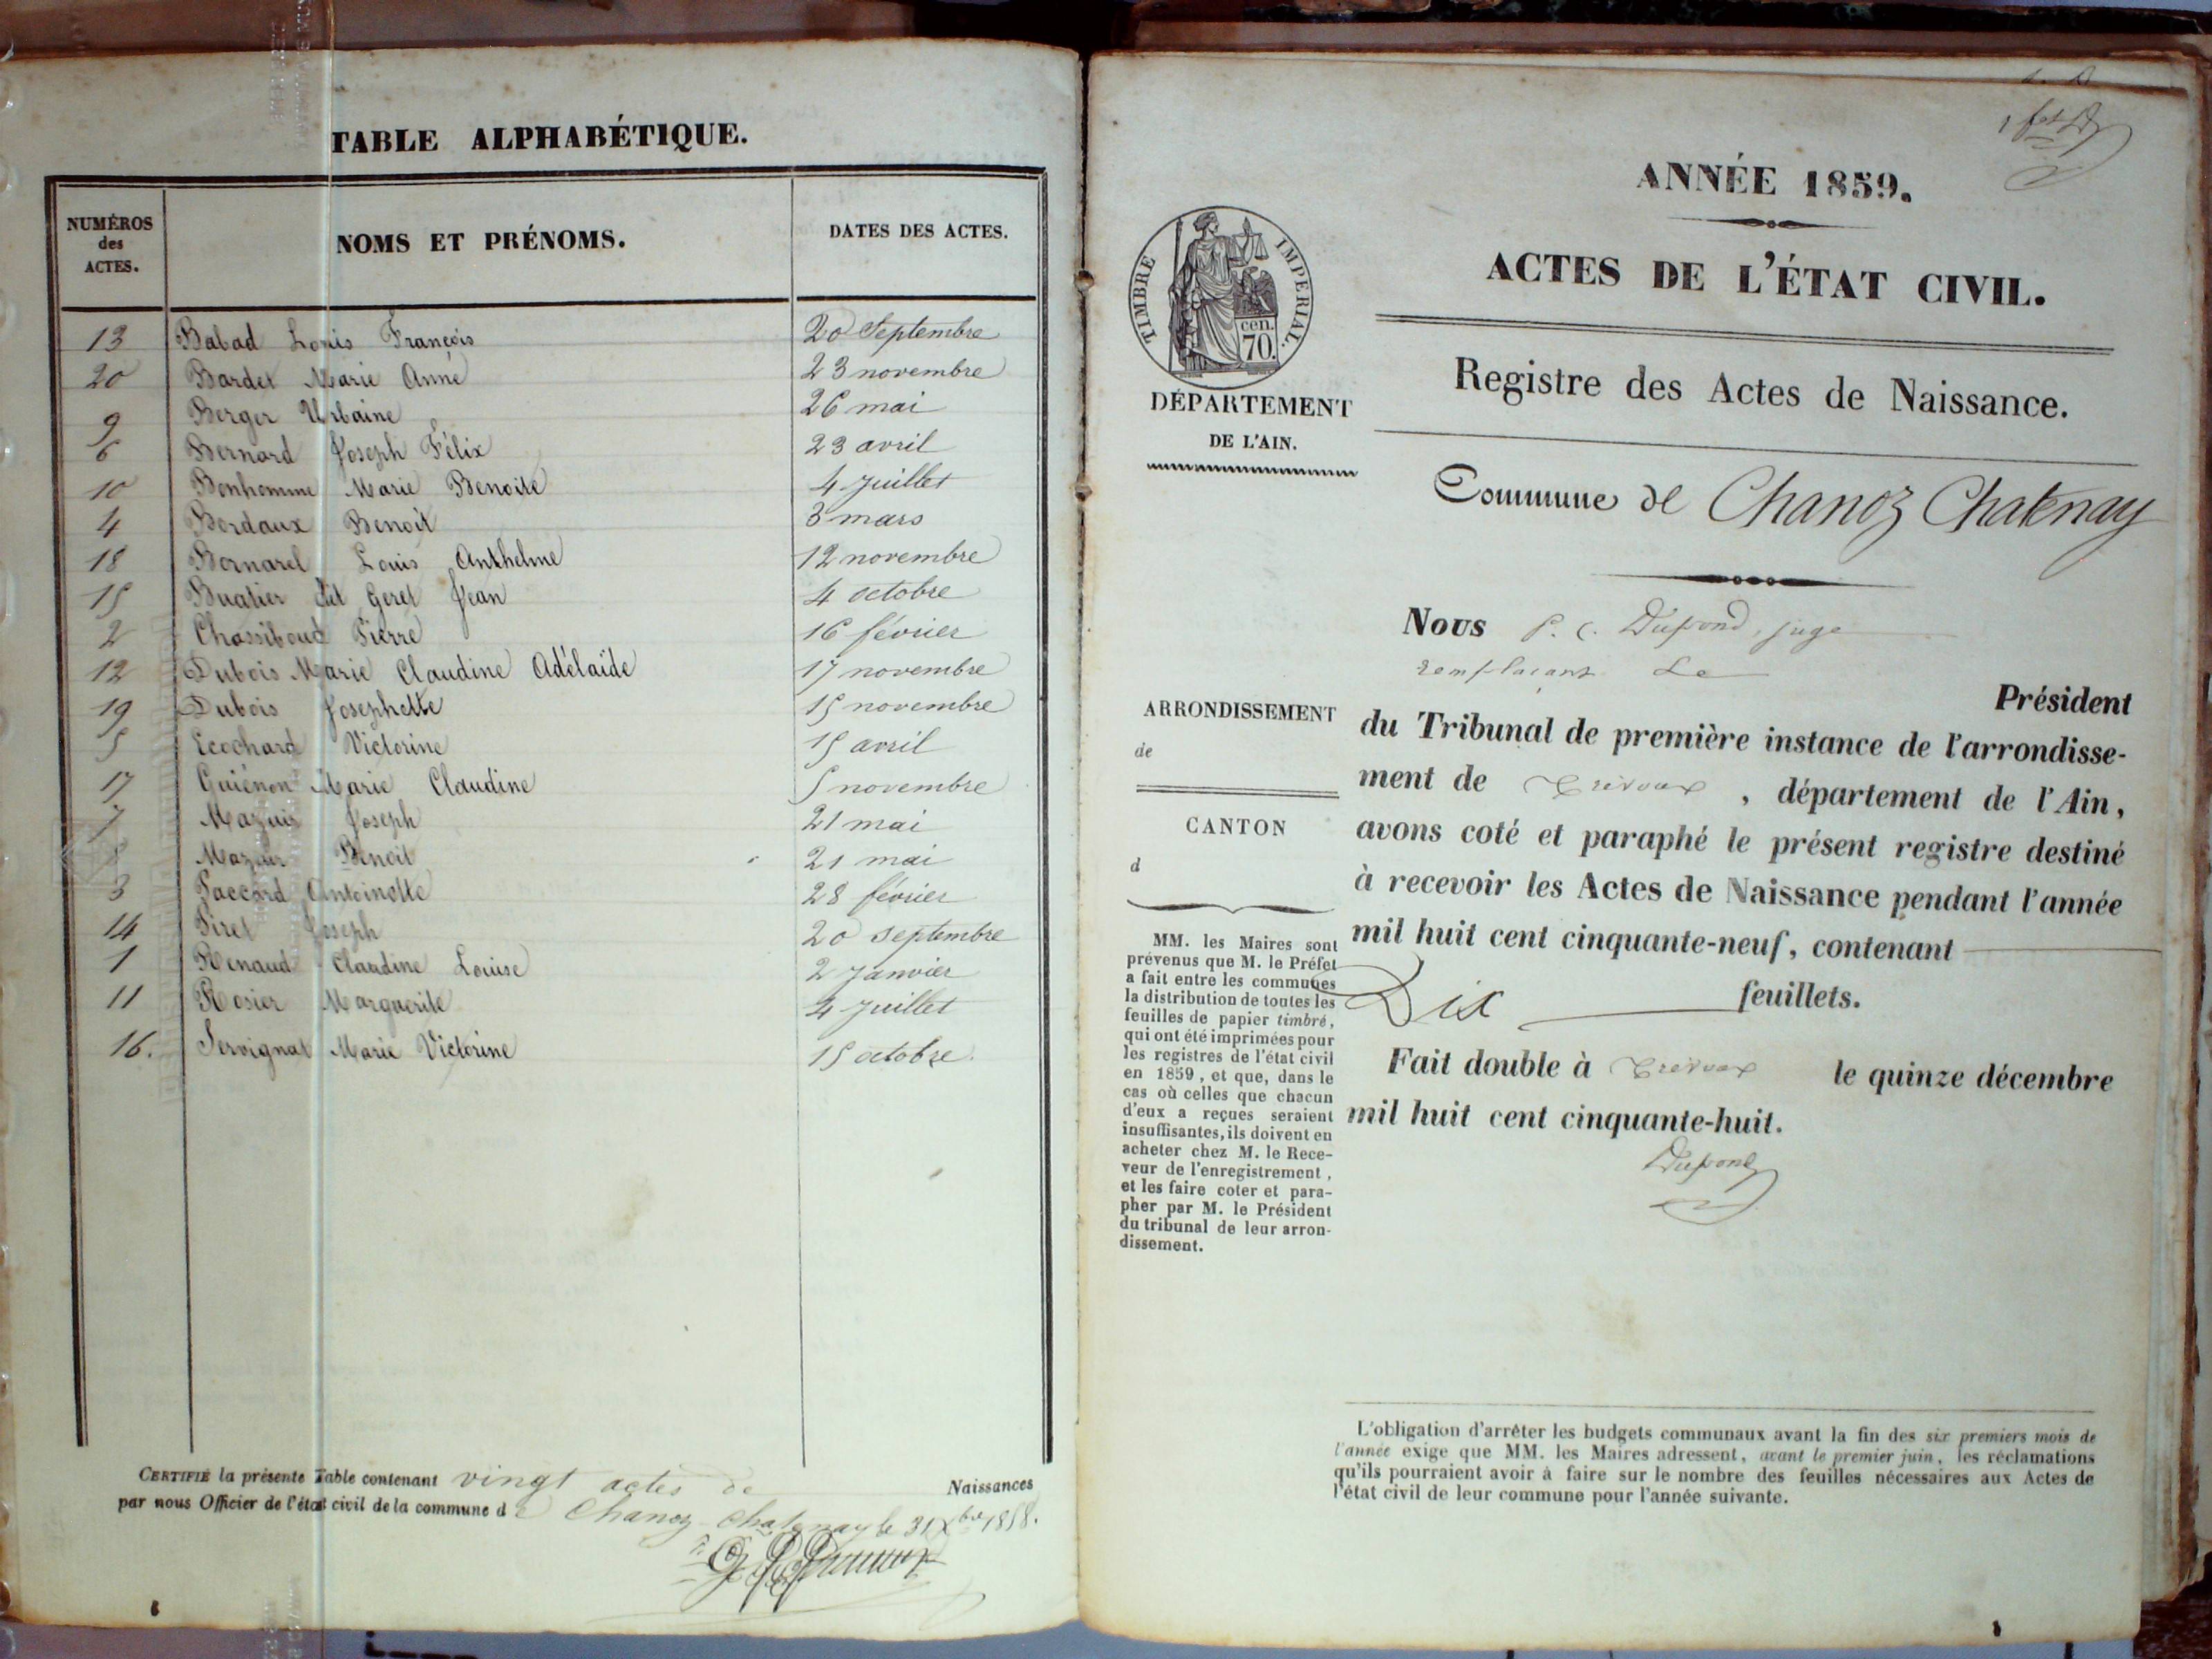 TABLE ALPHABÉTIQUE.
NUMÉROS des ACTES. NOMS ET PRÉNOMS. DATES DES ACTES.
13 Babad Louis François 20 Septembre
20 Bardet Marie Anne 23 novembre
9 Berger Urbaine 26 mai
6 Bernard Joseph Félix 23 avril
10 Bonhomme Marie Benoite 4 Juillet
4 Bordaux Benoit 3 mars
18 Bornarel Louis Anthelme 12 novembre
15 Buatier dit Geret Jean 4 octobre
2 Chassiboud Pierre 16 février
12 Dubois Marie Claudine Adélaïde 17 novembre
19 Dubois Josephette 15 novembre
5 Ecochard Victorine 15 avril
17 Guiénon Marie Claudine 5 novembre
7 Mazuir Joseph 21 mai
8 Mazuir Benoit 21 mai
3 Paccard Antoinette 28 février
14 Piret Joseph 20 septembre
1 Renaud Claudine Louise 2 Janvier
11 Rosier Marguerite 4 Juillet
16. Servignat Marie Victorine 15 octobre.
CERTIFIÉ la présente Table contenant vingt actes de Naissances
par nous Officier de l'état civil de la commune de Chanoz-Chatenay le 31 Xbre 1858.
ANNÉE 1859.
ACTES DE L'ÉTAT CIVIL.
TIMBRE IMPERIAL.
cen.
70.
DÉPARTEMENT
DE L'AIN.
Registre des Actes de Naissance.
Commune de Chanoz Chatenay
Nous P. C. Dupond, juge
remplaçant Le
Président
du Tribunal de première instance de l'arrondisse-
ment de Trévoux, département de l'Ain,
avons coté et paraphé le présent registre destiné
à recevoir les Actes de Naissance pendant l'année
mil huit cent cinquante-neuf, contenant
Dix feuillets.
Fait double à Trévoux le quinze décembre
mil huit cent cinquante-huit.
Dupond
ARRONDISSEMENT
de
CANTON
d
MM. les Maires sont
prévenus que M. le Préfet
a fait entre les communes
la distribution de toutes les
feuilles de papier timbré,
qui ont été imprimées pour
les registres de l'état civil
en 1859, et que, dans le
cas où celles que chacun
d'eux a reçues seraient
insuffisantes, ils doivent en
acheter chez M. le Rece-
veur de l'enregistrement,
et les faire coter et para-
pher par M. le Président
du tribunal de leur arron-
dissement.
L'obligation d'arrêter les budgets communaux avant la fin des six premiers mois de
l'année exige que MM. les Maires adressent, avant le premier juin, les réclamations
qu'ils pourraient avoir à faire sur le nombre des feuilles nécessaires aux Actes de
l'état civil de leur commune pour l'année suivante.